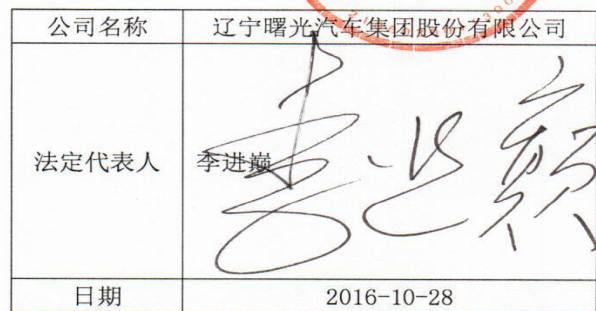 公司名称 辽宁曙光汽车集团股份有限公司
法定代表人 李进巅
日期 2016-10-28